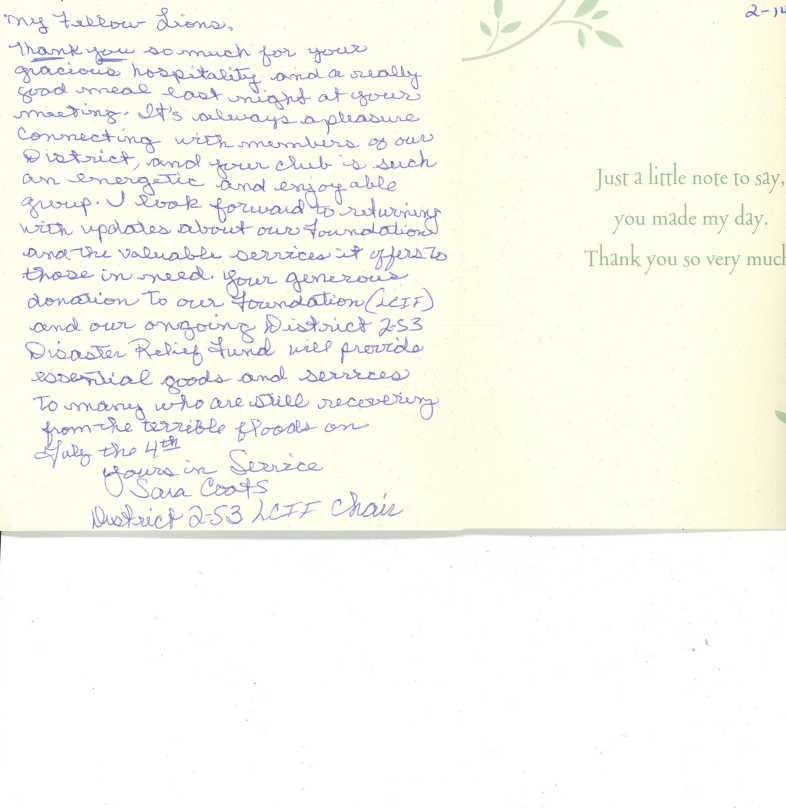 My Fellow Lions,
Thank you so much for your
gracious hospitality and a really
good meal last night at your
meeting. It's always a pleasure
connecting with members of our
District, and your club is such
an energetic and enjoyable
group. I look forward to returning
with updates about our Foundation
and the valuable services it offers to
those in need. Your generous
donation to our Foundation (LCIF)
and our ongoing District 2-S3
Disaster Relief Fund will provide
essential goods and services
to many who are still recovering
from the terrible floods on
July the 4th
Yours in Service
Sara Coats
District 2-S3 LCIF Chair
2-14
Just a little note to say,
you made my day.
Thank you so very much